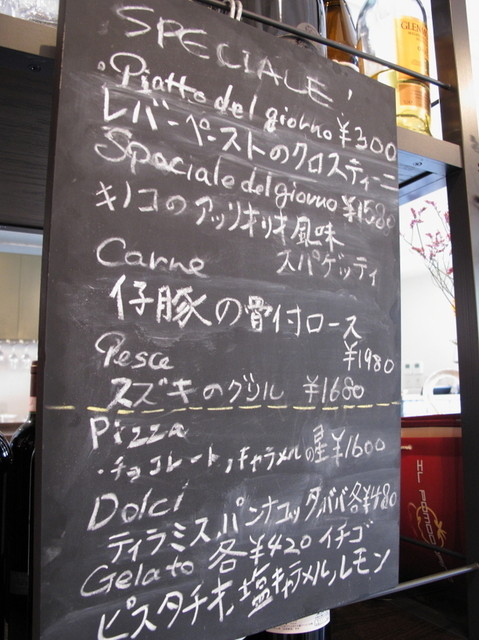 SPECIALE!
・Piatto del giorno ¥300
レバーペーストのクロスティーニ
Spaciale del giorno ¥1580
キノコのアッリオリオ風味
スパゲッティ
Carne
仔豚の骨付ロース
¥1980
Pesce
スズキのグリル ¥1680
Pizza
・チョコレート,キャラメルの星¥1600
Dolci
ティラミス,パンナコッタ,ババ各¥480
Gelato 各¥420 イチゴ
ピスタチオ,塩キャラメル,レモン
GLEN